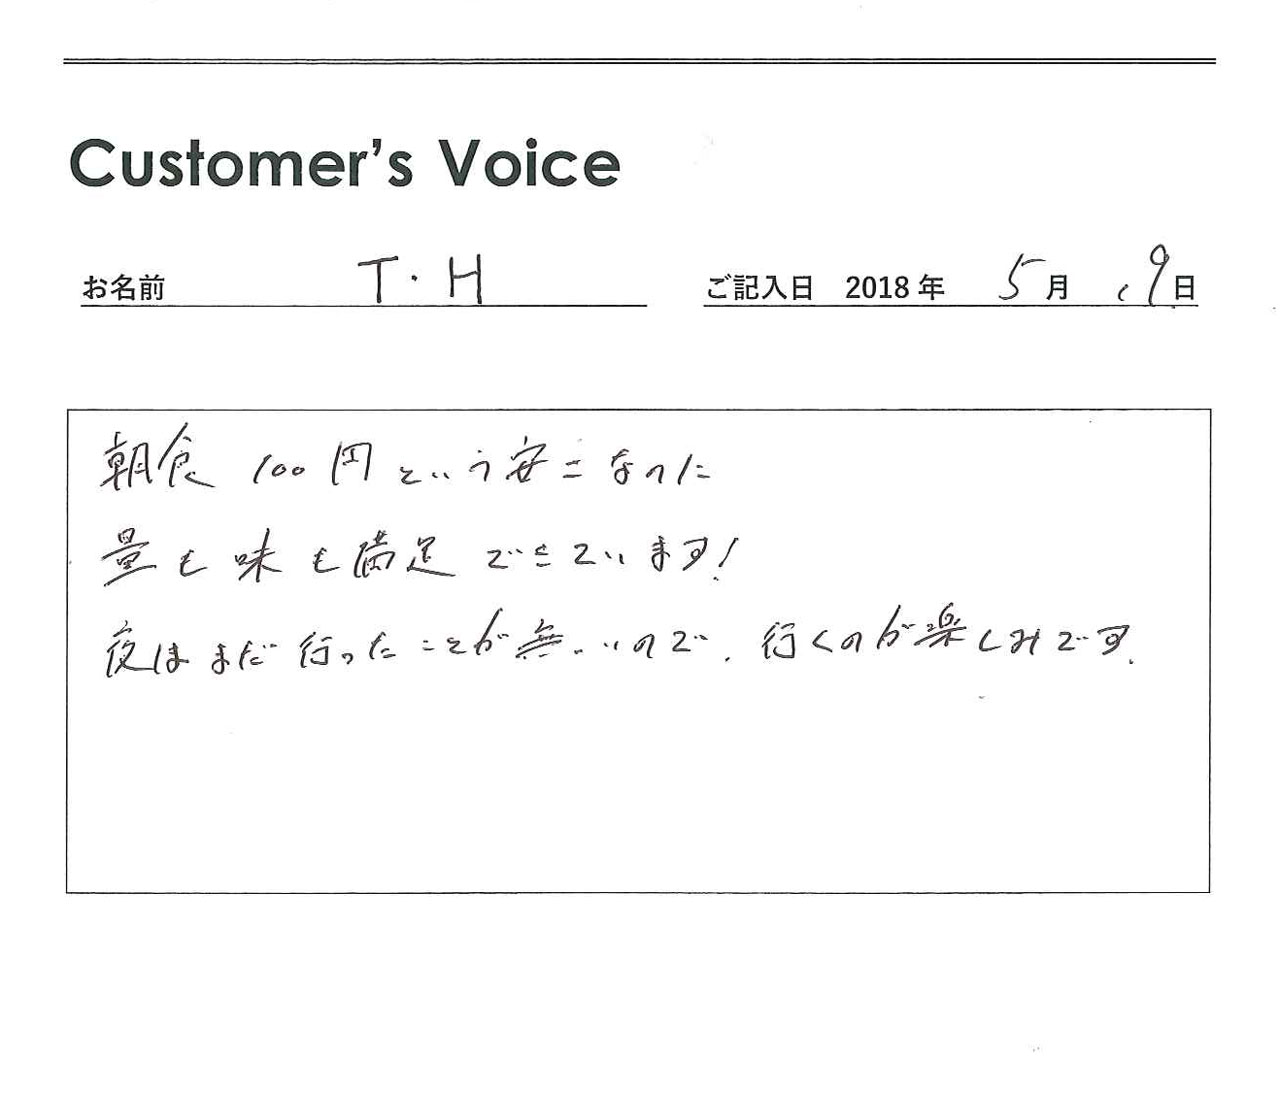 Customer's Voice
お名前 T・H ご記入日 2018年 5月 19日
朝食 100円という安さなのに
量も味も満足できています!
夜はまだ行ったことが無いので、行くのが楽しみです.